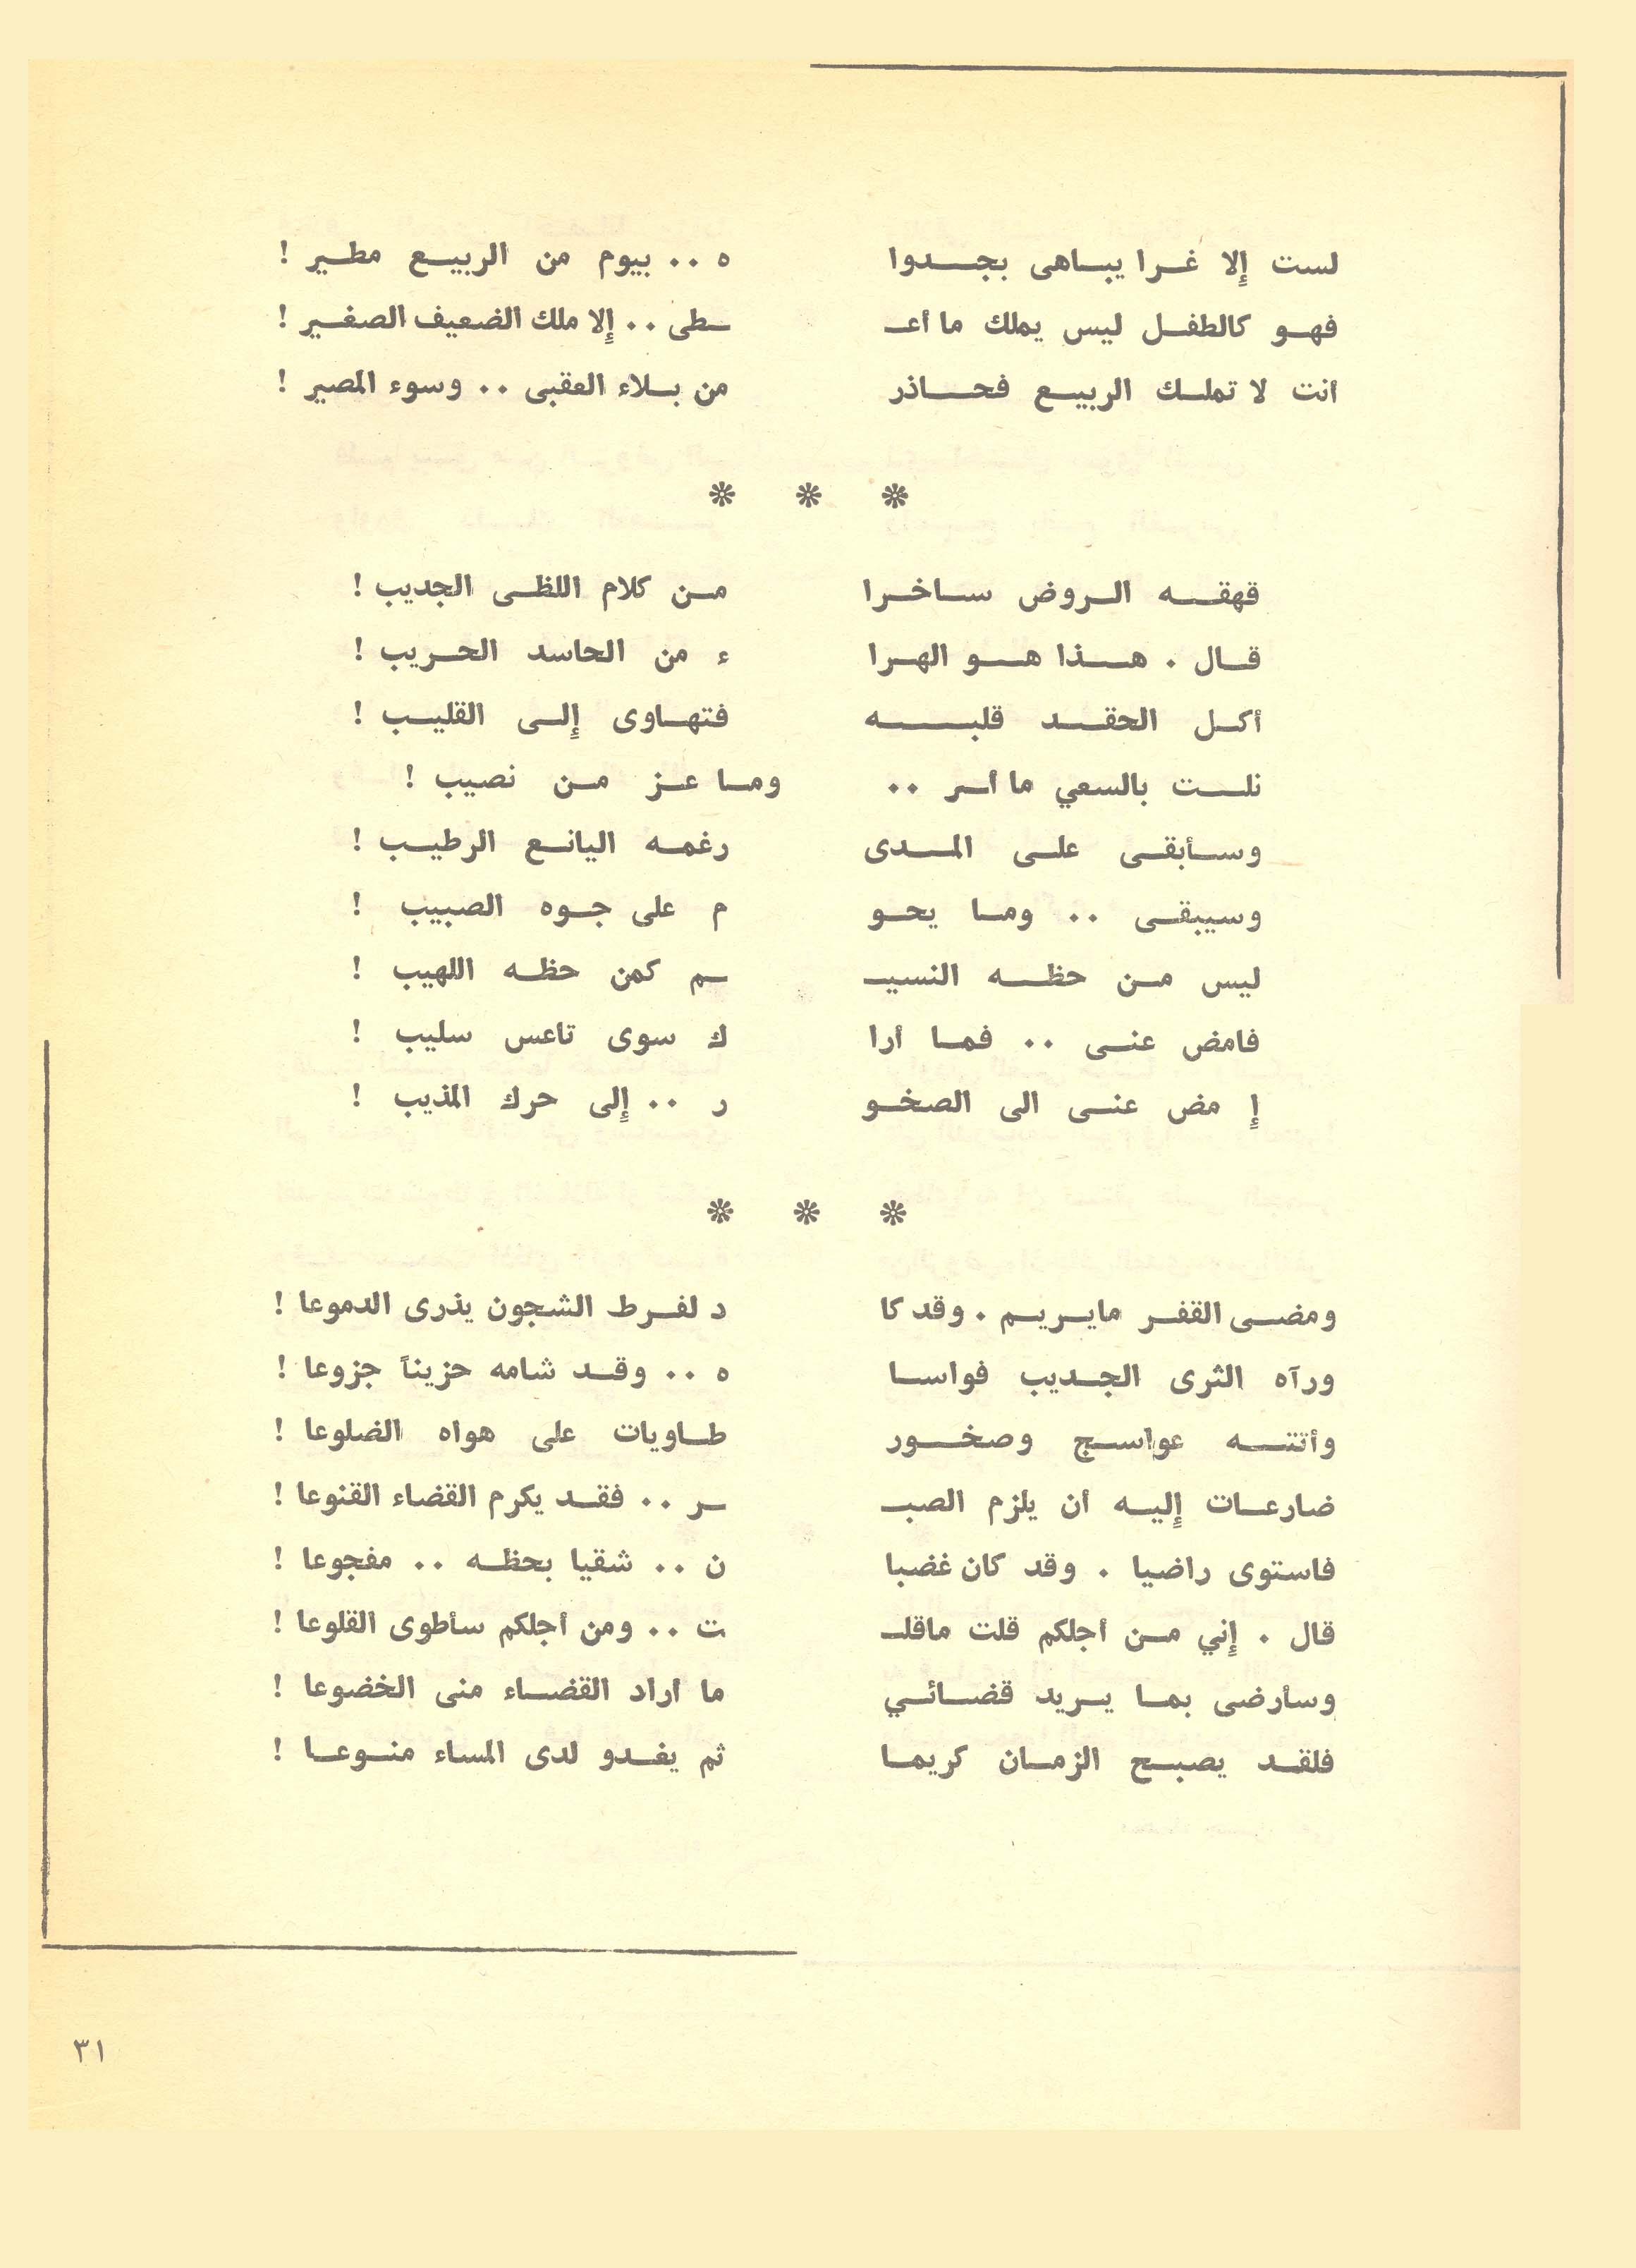 لست إلا غرا يباهى بجدوا ه .. بيوم من الربيع مطير !
فهو كالطفل ليس يملك ما أعـ ـطى .. إلا ملك الضعيف الصغير !
أنت لا تملك الربيع فحاذر من بلاء العقبى .. وسوء المصير !
* * *
قهقه الروض ساخرا من كلام اللظى الجديب !
قال . هذا هو الهرا ء من الحاسد الحريب !
أكل الحقد قلبه فتهاوى إلى القليب !
نلت بالسعي ما أسر .. وما عز من نصيب !
وسأبقى على المدى رغمه اليانع الرطيب !
وسيبقى .. وما يحو م على جوه الصبيب !
ليس من حظه النسيـ ـم كمن حظه اللهيب !
فامض عنى .. فما أرا ك سوى تاعس سليب !
إ مض عنى الى الصخو ر .. إلى حرك المذيب !
* * *
ومضى القفر مايريم . وقد كا د لفرط الشجون يذرى الدموعا !
ورآه الثرى الجديب فواسا ه .. وقد شامه حزيناً جزوعا !
وأتته عواسج وصخور طاويات على هواه الضلوعا !
ضارعات إليه أن يلزم الصبـ ـر .. فقد يكرم القضاء القنوعا !
فاستوى راضيا . وقد كان غضبا ن .. شقيا بحظه .. مفجوعا !
قال . إني من أجلكم قلت ماقلـ ـت .. ومن أجلكم سأطوى القلوعا !
وسأرضى بما يريد قضائي ما أراد القضاء منى الخضوعا !
فلقد يصبح الزمان كريما ثم يغدو لدى المساء منوعا !
٣١